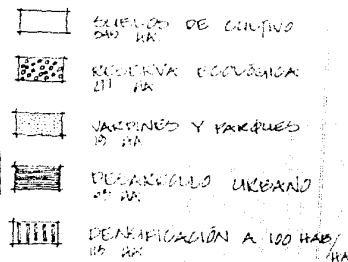 SUELOS DE CULTIVO
HA
RESERVA ECOLÓGICA
211 HA
JARDINES Y PARQUES
19 HA
DESARROLLO URBANO
HA
DENSIFICACIÓN A 100 HAB/HA
115 HA